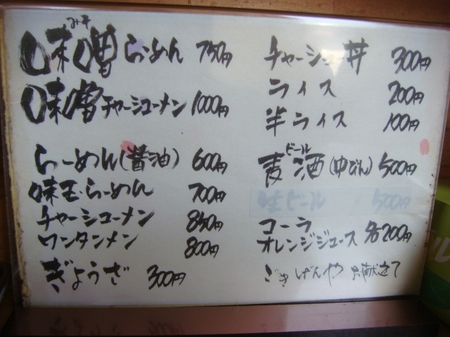 味噌らーめん 750円
味噌チャーシューメン 1000円
らーめん(醤油) 600円
味玉らーめん 700円
チャーシューメン 850円
ワンタンメン 800円
ぎょうざ 300円
チャーシュー丼 300円
ライス 200円
半ライス 100円
麦酒(中びん) 500円
生ビール 500円
コーラ
オレンジジュース 各200円
ごきげんや